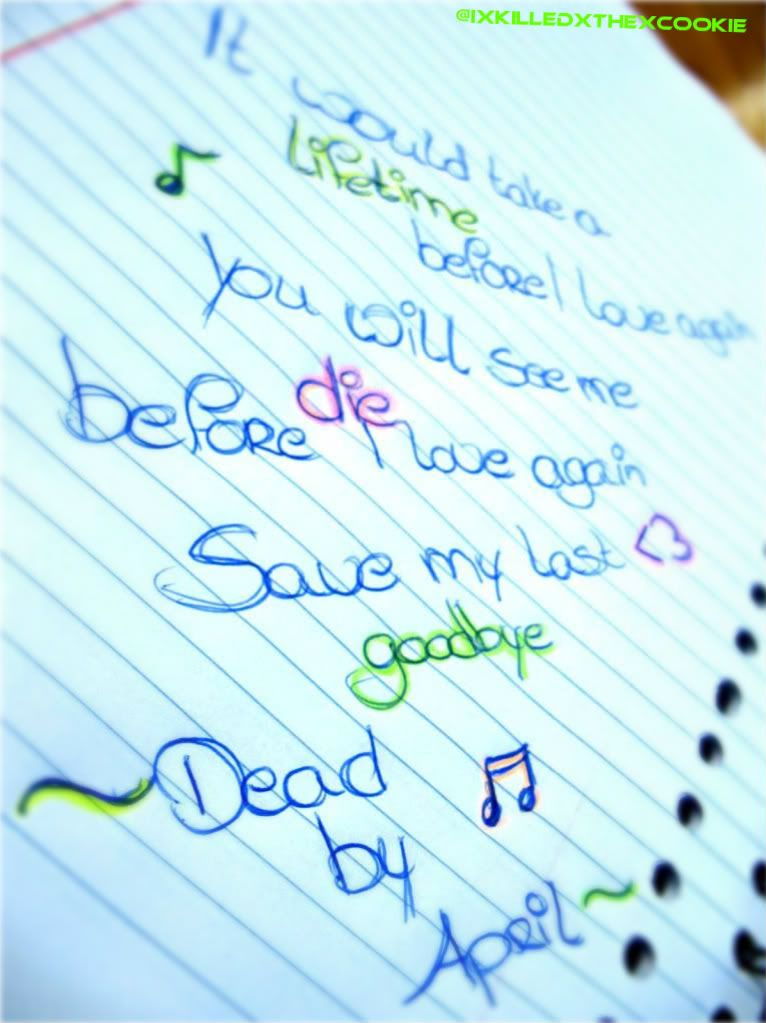 @IXKILLEDXTHEXCOOKIE
It would take a
Lifetime
before I love again
You will see me
die
before I love again
Save my last <3
goodbye
~Dead
by
April~